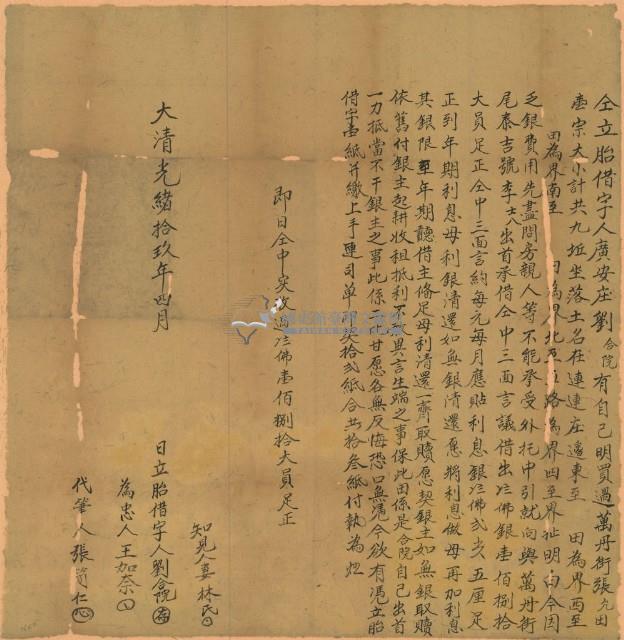 仝立胎借字人廣安庄劉合院有自己明買過萬丹街張九田
壹宗大小計共九坵坐落土名在連連庄邊東至 田為界西至
田為界南至 田為界北至 路為界四至界址明白今因
乏銀費用先盡問房親人等不能承受外托中引就向與萬丹街
尾泰吉號李 出首承借仝中三面言議借出 佛銀壹佰捌拾
大員足正仝中三面言約每元每月應貼利息銀 佛弍 五厘足
正到年期利息母利銀清還如無銀清還愿將利息做母再加利息
其銀限至年期聽借主俻足母利清還一齊取贖愿契銀主如無銀取贖
依舊付銀主起耕收租抵利不敢異言生端之事保此田係是合院自己出首
一力抵當不干銀主之事此係 甘愿各無反悔恐口無憑今欲有憑立胎
借字壹紙并繳上手連司單 拾弍紙合共拾叁紙付執為炤
即日仝中实收過 佛壹佰捌拾大員足正
知見人妻林氏
日立胎借字人劉合院
為忠人王加奈
代筆人張 仁
大清光緒拾玖年四月